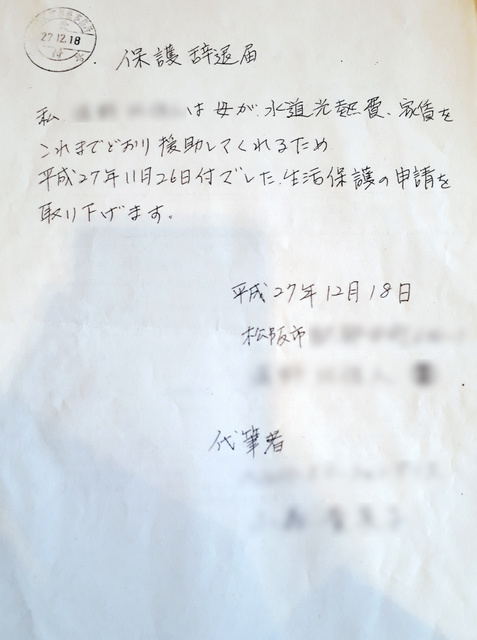 27.12.18
保護辞退届
私 は母が、水道光熱費、家賃を
これまでどおり援助してくれるため
平成27年11月26日付でした、生活保護の申請を
取り下げます。
平成27年12月18日
松阪市
代筆者